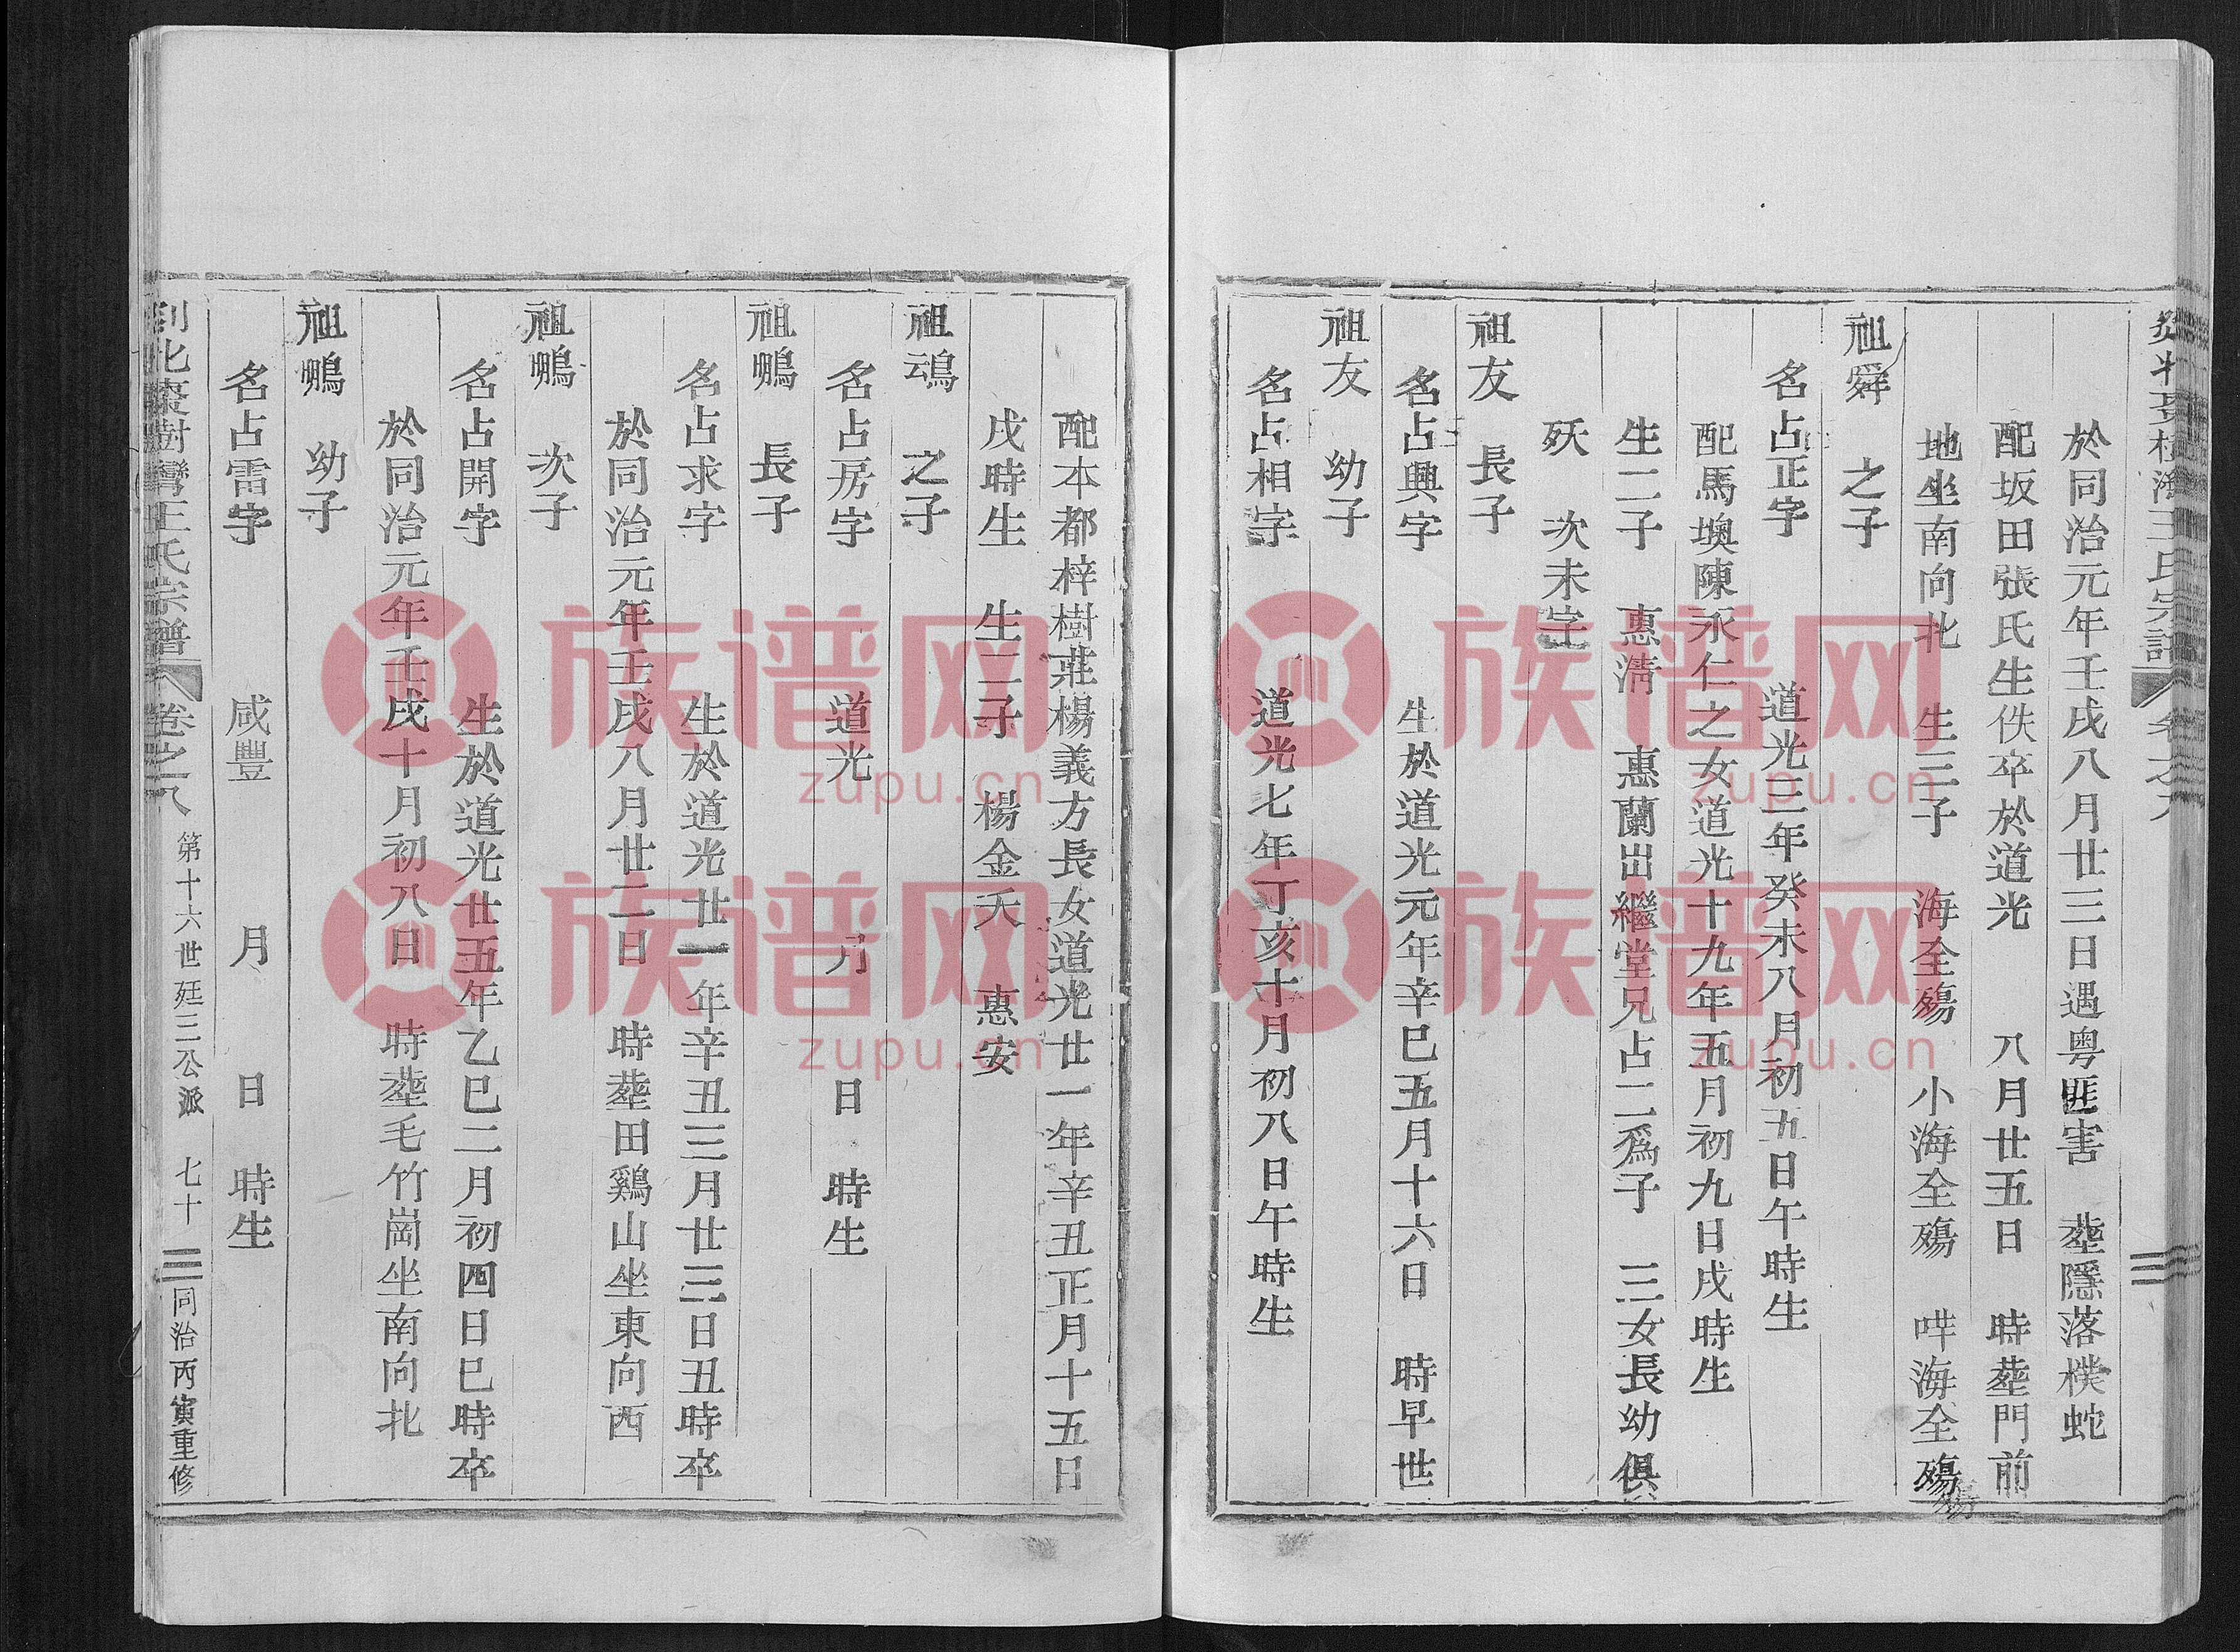 於同治元年壬戌八月廿三日遇粤匪害 塟隱落檏蛇
配坂田張氏生佚卒於道光 八月廿五日 時塟門前
地坐南向北 生三子 海全殤 小海全殤 哶海全殤
祖舜 之子
名占正字 道光三年癸未八月初五日午時生
配馬墺陳永仁之女道光十九年五月初九日戌時生
生二子 惠淸 惠蘭出繼堂兄占二爲子 三女長幼俱
殀 次未字
祖友 長子
名占興字 生於道光元年辛巳五月十六日 時早世
祖友 幼子
名占相字 道光七年丁亥十月初八日午時生
配本都梓樹莊楊義方長女道光廿一年辛丑正月十五日
戌時生 生二子 楊金夭 惠安
祖鴻 之子
名占房字 道光 月 日 時生
祖鵬 長子
名占求字 生於道光廿一年辛丑三月廿三日丑時卒
於同治元年壬戌八月廿二日 時塟田鷄山坐東向西
祖鵬 次子
名占開字 生於道光廿五年乙巳二月初四日巳時卒
於同治元年壬戌十月初八日 時塟毛竹崗坐南向北
祖鵬 幼子
名占雷字 咸豐 月 日 時生
北棗樹灣王氏宗譜 卷之八 第十六世廷三公派 七十 同治丙寅重修
族谱网
zupu.cn
族谱网
zupu.cn
族谱网
zupu.cn
族谱网
zupu.cn